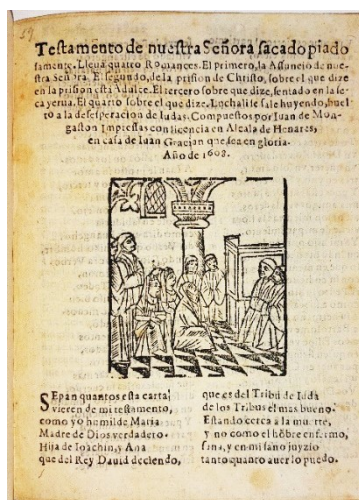 59
Testamento de nuestra Señora sacado piado
samente. Lleua quatro Romances. El primero, la Assuncio de nue-
stra Señora. El segundo, de la prision de Christo, sobre el que dize
en la prision està Adulce. El tercero sobre que dize, sentado en la se-
ca yerua. El quarto sobre el que dize. Luchali se sale huyendo, buel
to a la desesperacion de Iudas. Compuestos por Iuan de Mon-
gaston Impressas con licencia en Alcala de Henares,
en casa de Iuan Gracian que sea en gloria.
Año de 1608.
SEpan quantos esta carta
vieren de mi testamento,
como yo humilde Maria
Madre de Dios verdadero.
Hija de Ioachin, y Ana
que del Rey Dauid deciendo,
que es del Tribu de Iuda
de los Tribus el mas bueno.
Estando cerca a la muerte,
y no como el hõbre enfermo,
sana, y en mi sano juyzio
tanto quanto auer lo puedo.